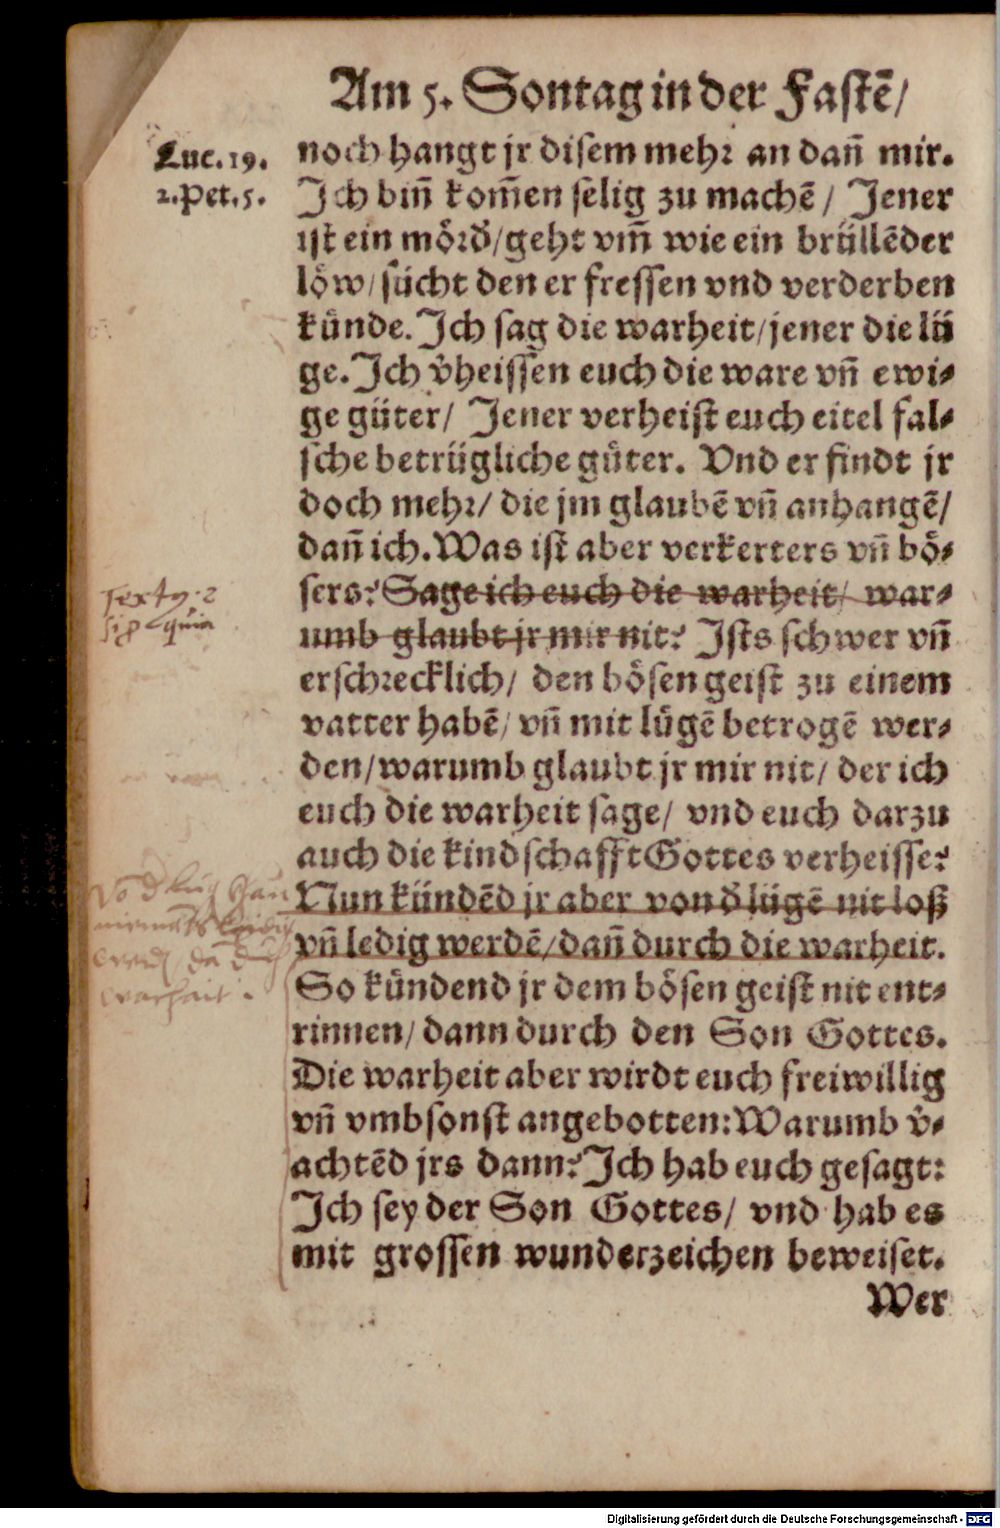 Am 5. Sontag in der Fastẽ/
Luc. 19.
2. Pet. 5.
noch hangt jr disem mehr an dañ mir.
Ich biñ kom̃en selig zu machẽ / Jener
ist ein mörd̾/geht vm̃ wie ein brüllẽder
löw/sücht den er fressen vnd verderben
künde. Ich sag die warheit/jener die lü
ge. Ich v̾heissen euch die ware vñ ewi⸗
ge güter/ Jener verheist euch eitel fal⸗
sche betrügliche güter. Vnd er findt jr
doch mehr/ die jm glaubẽ vñ anhangẽ/
dañ ich. Was ist aber verkerters vñ bö⸗
sers? Sage ich euch die warheit/ war⸗
umb glaubt jr mir nit? Ists schwer vñ
erschrecklich/ den bösen geist zu einem
vatter habẽ/ vñ mit lügẽ betrogẽ wer⸗
den/warumb glaubt jr mir nit/ der ich
euch die warheit sage/ vnd euch darzu
auch die kindschafft Gottes verheisse?
Nun kündẽd jr aber von d̾ lügẽ nit loß
vñ ledig werdẽ/dañ durch die warheit.
So kündend jr dem bösen geist nit ent⸗
rinnen/ dann durch den Son Gottes.
Die warheit aber wirdt euch freiwillig
vñ vmbsonst angebotten: Warumb v̾⸗
achtẽd jrs dann? Ich hab euch gesagt:
Ich sey der Son Gottes/ vnd hab es
mit grossen wunderzeichen beweiset.
Wer
quia
warhait.
Digitalisierung gefördert durch die Deutsche Forschungsgemeinschaft - DFG